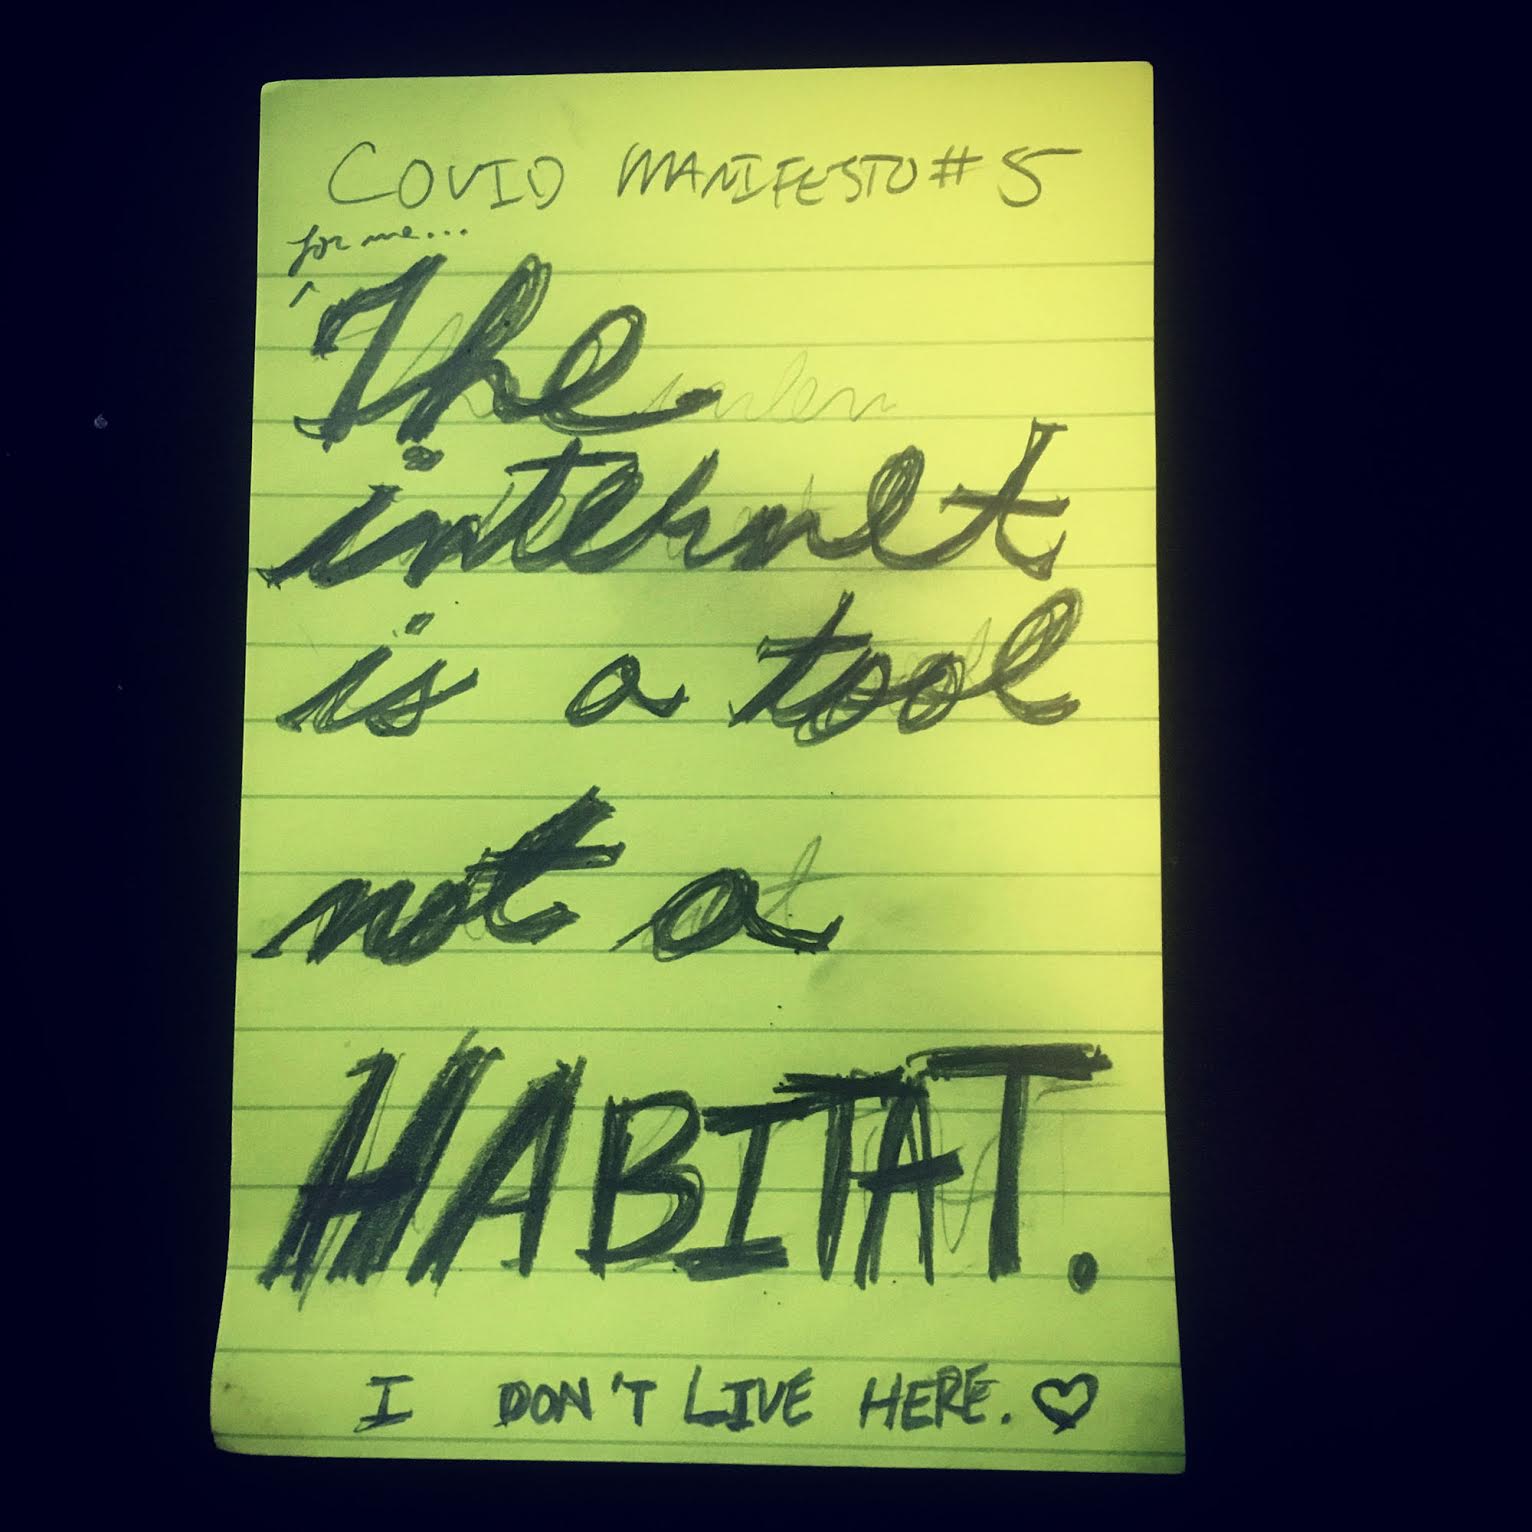 COVID MANIFESTO #5
for me...
^ The
internet
is a tool
not a
HABITAT.
I DON'T LIVE HERE. ♡